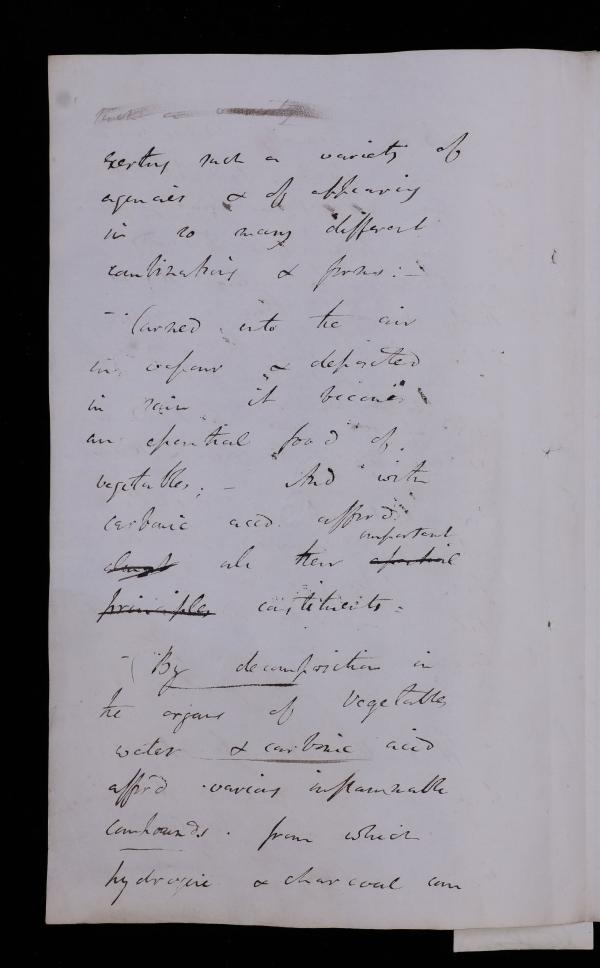 exerting such a variety of
agencies & of appearing
in so many different
combinations & forms: –
– Carried into the air
in vapour & deposited
in rain it becomes
an essential food of
vegetables; – And with
carbonic acid affords
important
almost all their essential
principles constituents –
– By decomposition in
the organs of Vegetables
water & carbonic acid
afford various inflammable
compounds. from which
hydrogene & charcoal can